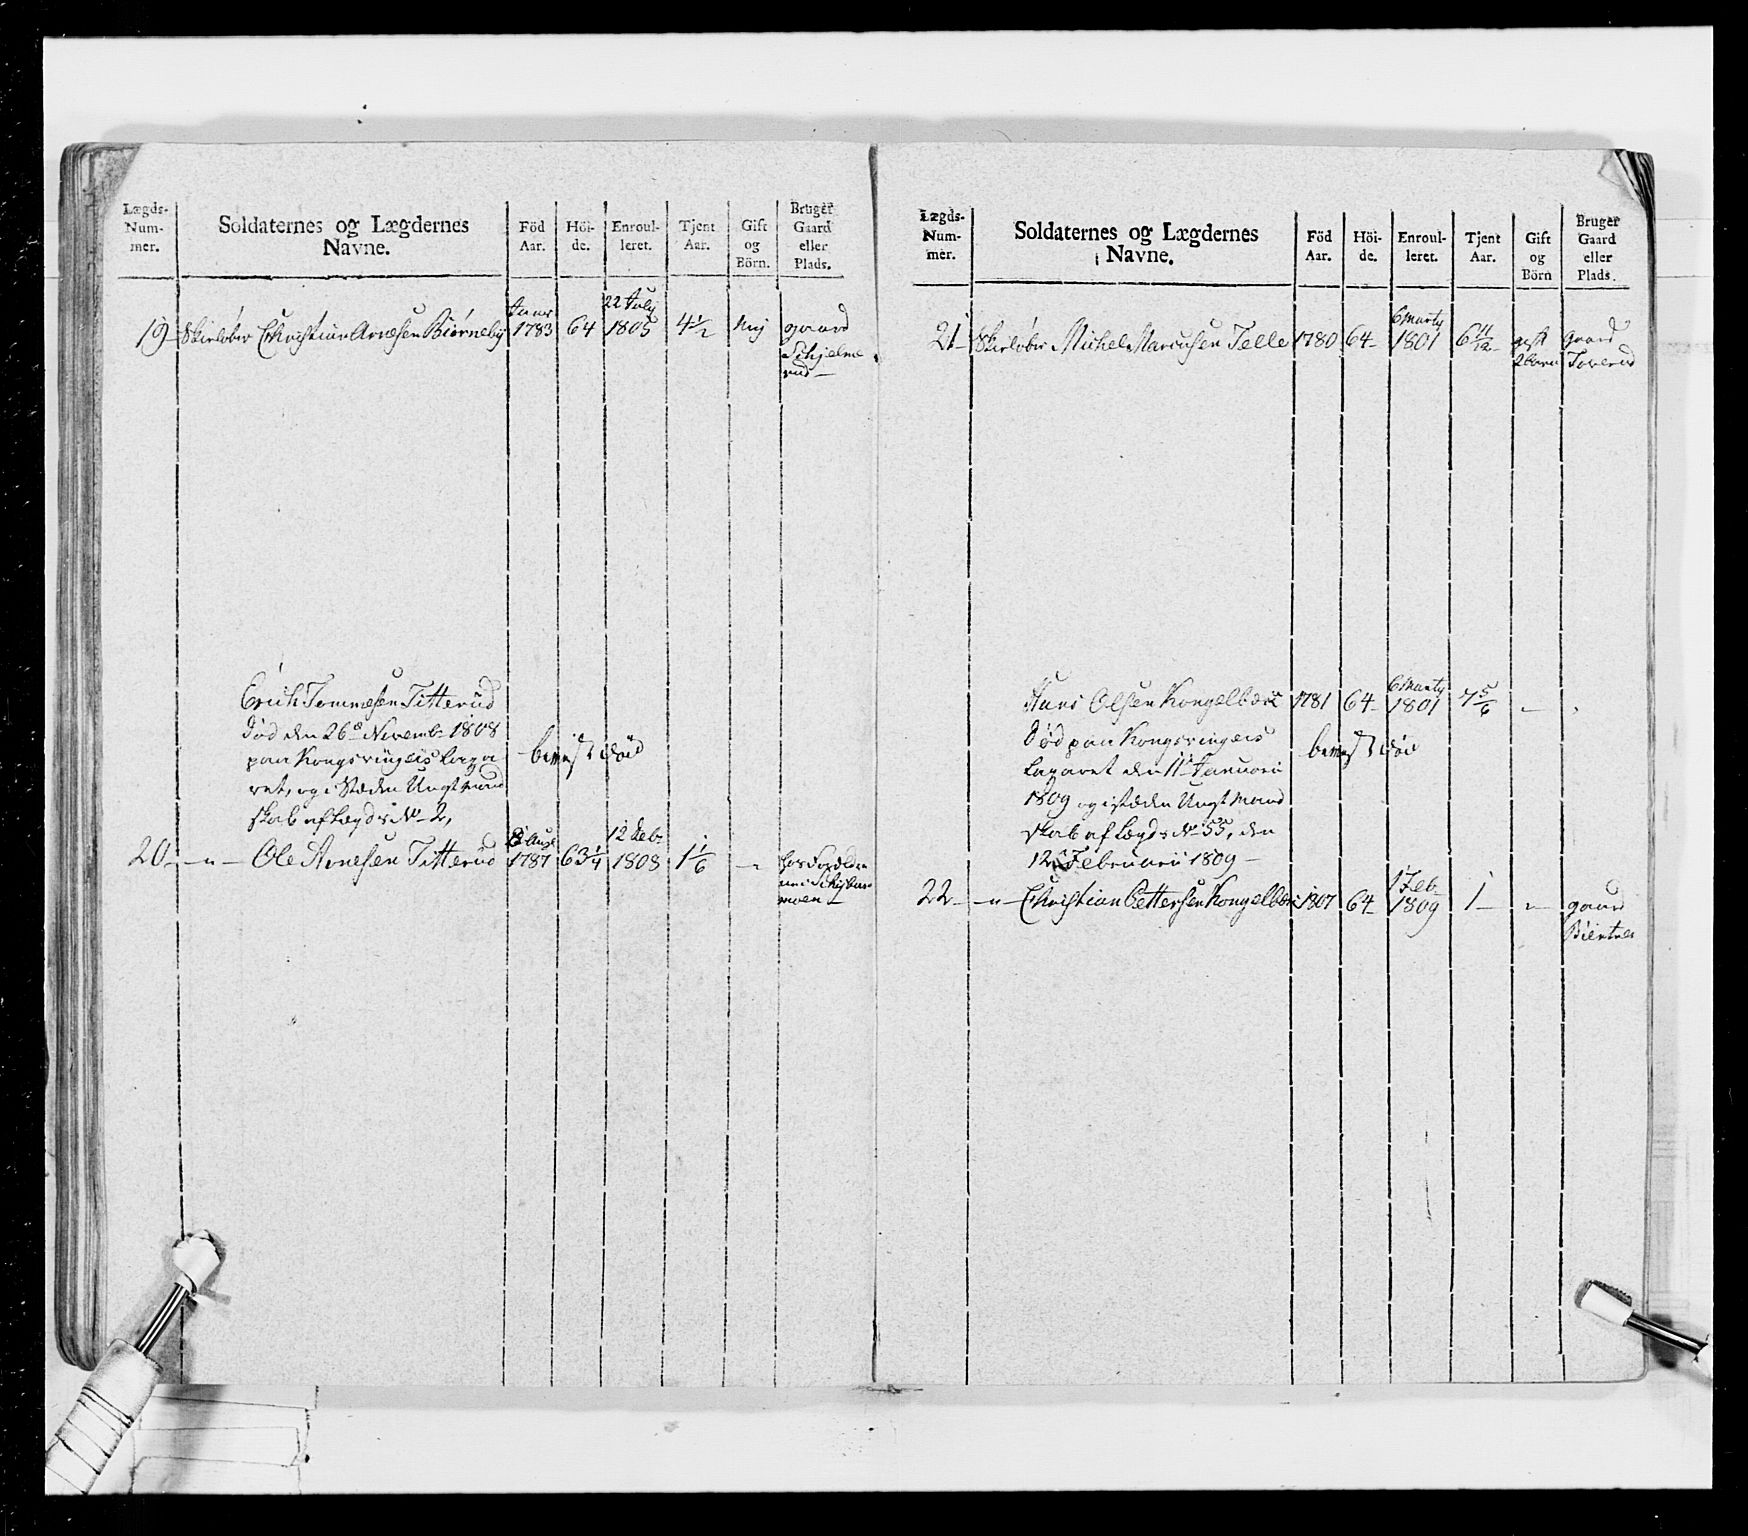 Lægds-
Num-
mer.
Soldaternes og Lægdernes
Navne.
Föd
Aar.
Höi-
de.
Enroul-
leret.
Tjent
Aar.
Gift
og
Börn.
Bruger
Gaard
eller
Plads.
19 Skieløber Christian Arnesen Biørneby 1783 64 22 July 1805 4½ Nej gaard
Schjelme
rud
Erich Tommesen Titterud
død den 26de Novembr 1808
paa Kongsvingers Laza
ret, og i Stæden Ungt mand
skab af Lægds No 2,
bevist død
20 - " - Ole Arnesen Titterud 1787 63¼ 12 Feb 1808 1 1/6 -
moen
Lægds-
Num-
mer.
Soldaternes og Lægdernes
Navne.
Föd
Aar.
Höi-
de.
Enroul-
leret.
Tjent
Aar.
Gift
og
Börn
Bruger
Gaard
eller
Plads.
21 Skieløber Michel Marcusen Telle 1780 64 6 Marty 1801 6 11/12 gift gaard
2 børn Toverud
Hans Olsen Kongelbæk 1781 64 6 Marty 1801 7 5/6 -
død paa Kongsvingers
Lazaret den 11 Januari
1809 og i stæden Ungt Mand
skab af Lægds No 55, den
12 Februarii 1809
bevist død
22 - " - Christian Pettersen Kongelbæk 1807 64 1 Feb 1809 1 - gaard